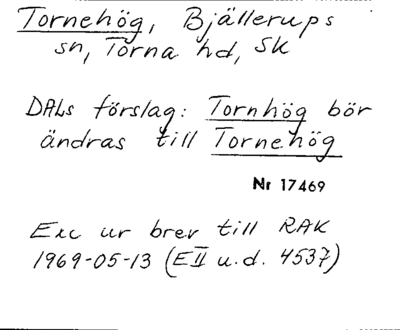 Tornehög, Bjällerups
sn, Torna hd, SK
DALs förslag: Tornhög bör
ändras till Tornehög
Nr 17469
Exc ur brev till RAK
1969-05-13 (EII u.d. 4537)